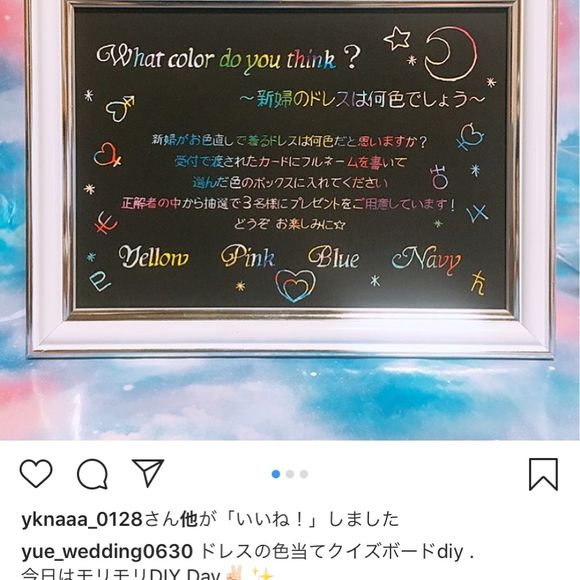 What color do you think ?
～新婦のドレスは何色でしょう～
新婦がお色直しで着るドレスは何色だと思いますか？
受付で渡されたカードにフルネームを書いて
選んだ色のボックスに入れてください
正解者の中から抽選で３名様にプレゼントをご用意しています！
どうぞ お楽しみに☆
Yellow Pink Blue Navy
yknaaa_0128さん他が「いいね！」しました
yue_wedding0630 ドレスの色当てクイズボードdiy .
今日はモリモリDIY Day✌🏻✨